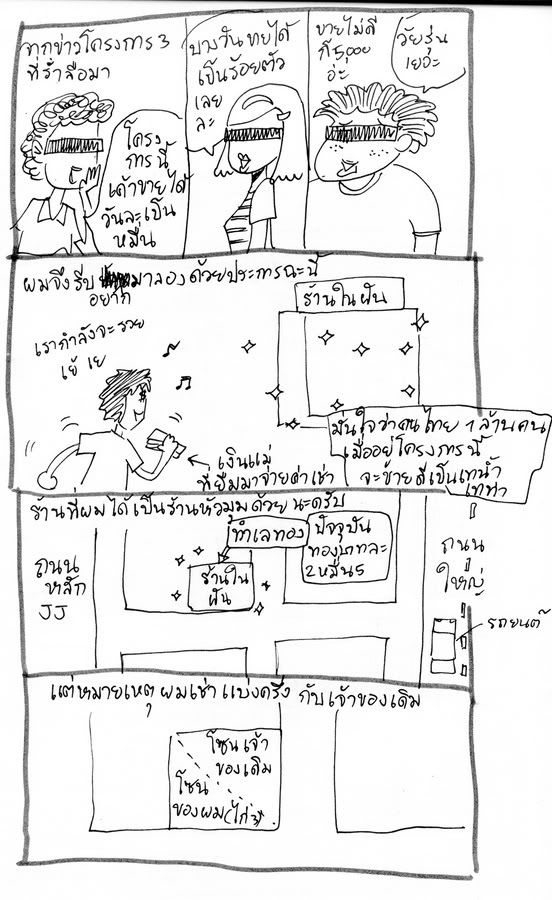 จากข่าวโครงการ 3
ที่ร่ำลือมา
โครง
การนี้
เค้าขายได้
วันละเป็น
หมื่น
บางวันขายได้
เป็นร้อยตัว
เลย
ละ
ขายไม่ดี
ก็ 5,000
อ่ะ
วัยรุ่น
เยอะ
ผมจึงรีบ
มาลองด้วยประการฉะนี้
อยาก
ร้านในฝัน
เรากำลังจะรวย
เย้ เย
มั่นใจว่าคนไทย 1 ล้านคน
เมื่ออยู่โครงการนี้
จะขายดีเป็นเทน้ำ
เทท่า
เงินแม่
ที่ยืมมาจ่ายค่าเช่า
ร้านที่ผมได้เป็นร้านหัวมุมด้วยนะครับ
ทำเลทอง
ปัจจุบัน
ทองบาทละ
2หมื่น5
ถนน
หลัก
JJ
ร้านใน
ฝัน
ถนน
ใหญ่
รถยนต์
แต่หมายเหตุ ผมเช่าแบ่งครึ่ง กับเจ้าของเดิม
โซนเจ้า
ของเดิม
โซน
ของผม